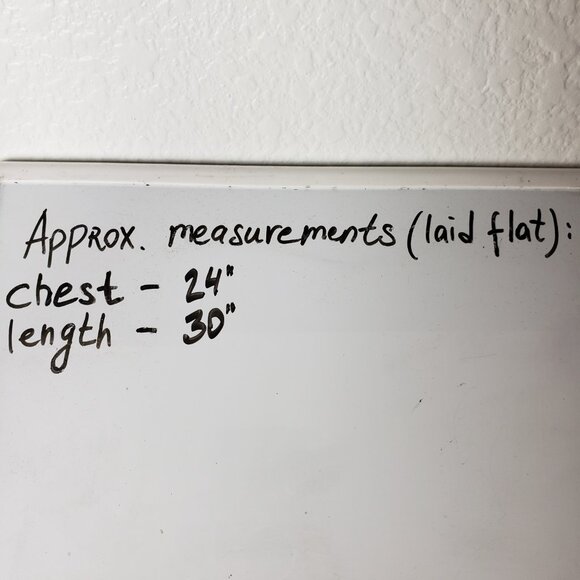 Approx. measurements (laid flat):
chest - 24"
length - 30"